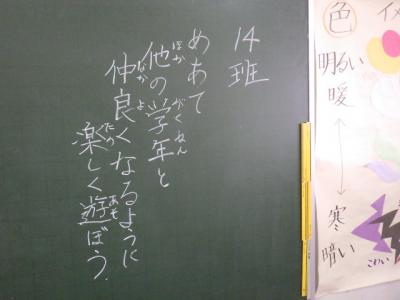 14班
めあて
他の学年と
ほか がくねん
仲良くなるように
なか よ
楽しく遊ぼう
たの あそ
色
イメ
明るい
暖
寒
暗い
こわい